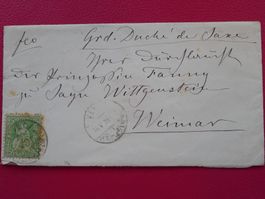 fco Grd. Duché de Saxe
Ihrer Durchlaucht
der Prinzessin Fanny
zu Sayn Wittgenstein
Weimar